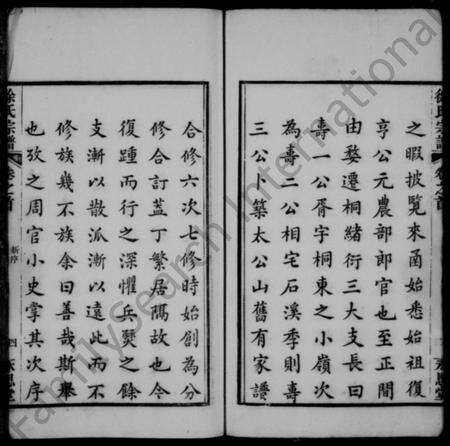 之暇披覽來函始悉始祖復
亨公元農部郎官也至正間
由婺遷桐緒衍三大支長曰
壽一公胥宇桐東之小嶺次
為壽二公相宅石溪季則壽
三公卜築太公山舊有家譜
合修六次七修時始創為分
修合訂蓋丁繁居隔故也今
復踵而行之深懼兵燹之餘
支漸以散派漸以遠此而不
修族幾不族余曰善哉斯舉
也攷之周官小史掌其次序
徐氏宗譜
卷之首
新序
四
FamilySearch International